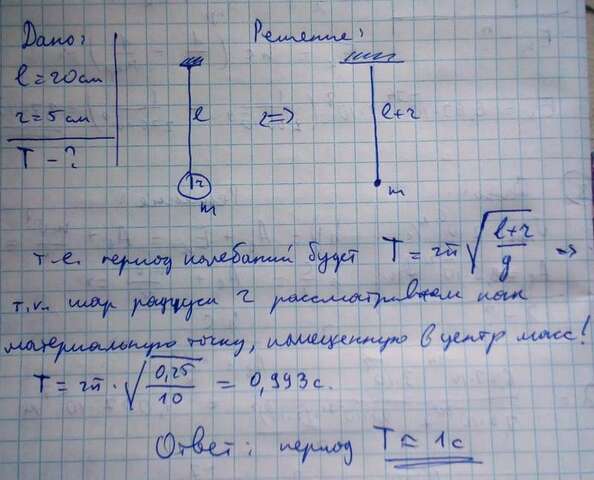 Дано:
Решение:
l = 20 см
r = 5 см
T - ?
l
<=>
l+r
r
m
m
т.е. период колебаний будет T = 2π √((l+r)/g) =>
т.к. шар радиуси r рассматриваем как
материальную точку, помещенную в центр масс!
T = 2π · √(0,25/10) = 0,993 с.
Ответ: период T ≈ 1 с